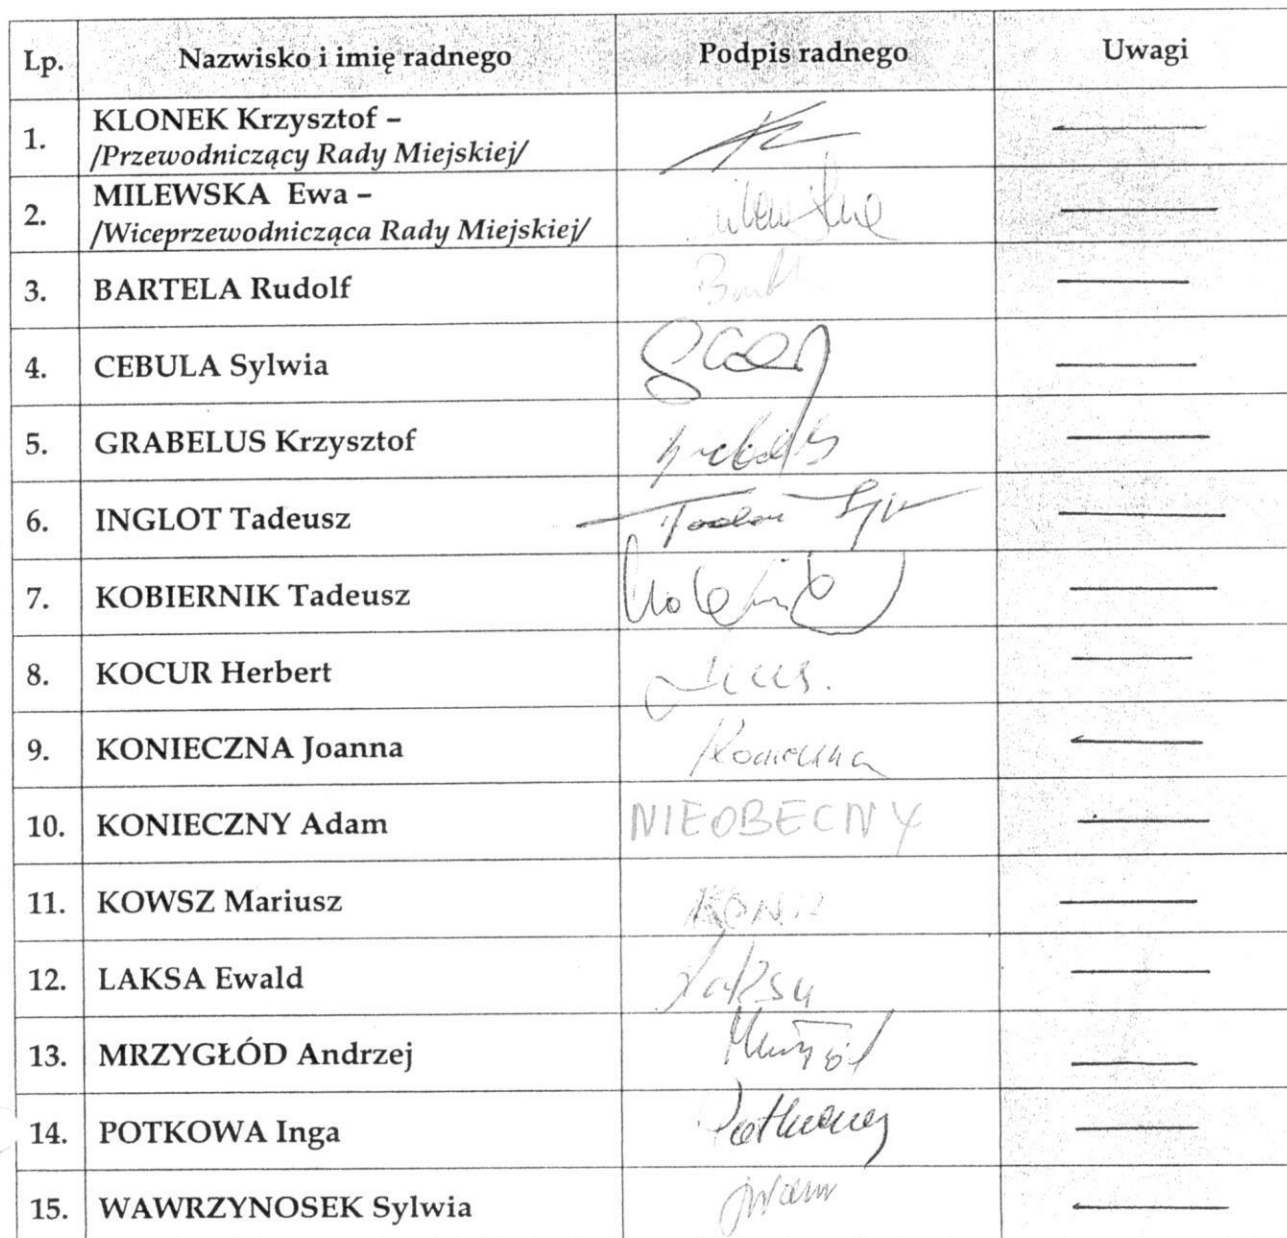 Lp. Nazwisko i imię radnego Podpis radnego Uwagi
1. KLONEK Krzysztof –
/Przewodniczący Rady Miejskiej/
2. MILEWSKA Ewa –
/Wiceprzewodnicząca Rady Miejskiej/
3. BARTELA Rudolf
4. CEBULA Sylwia
5. GRABELUS Krzysztof
6. INGLOT Tadeusz
7. KOBIERNIK Tadeusz
8. KOCUR Herbert
9. KONIECZNA Joanna
10. KONIECZNY Adam NIEOBECNY
11. KOWSZ Mariusz
12. LAKSA Ewald
13. MRZYGŁÓD Andrzej
14. POTKOWA Inga
15. WAWRZYNOSEK Sylwia